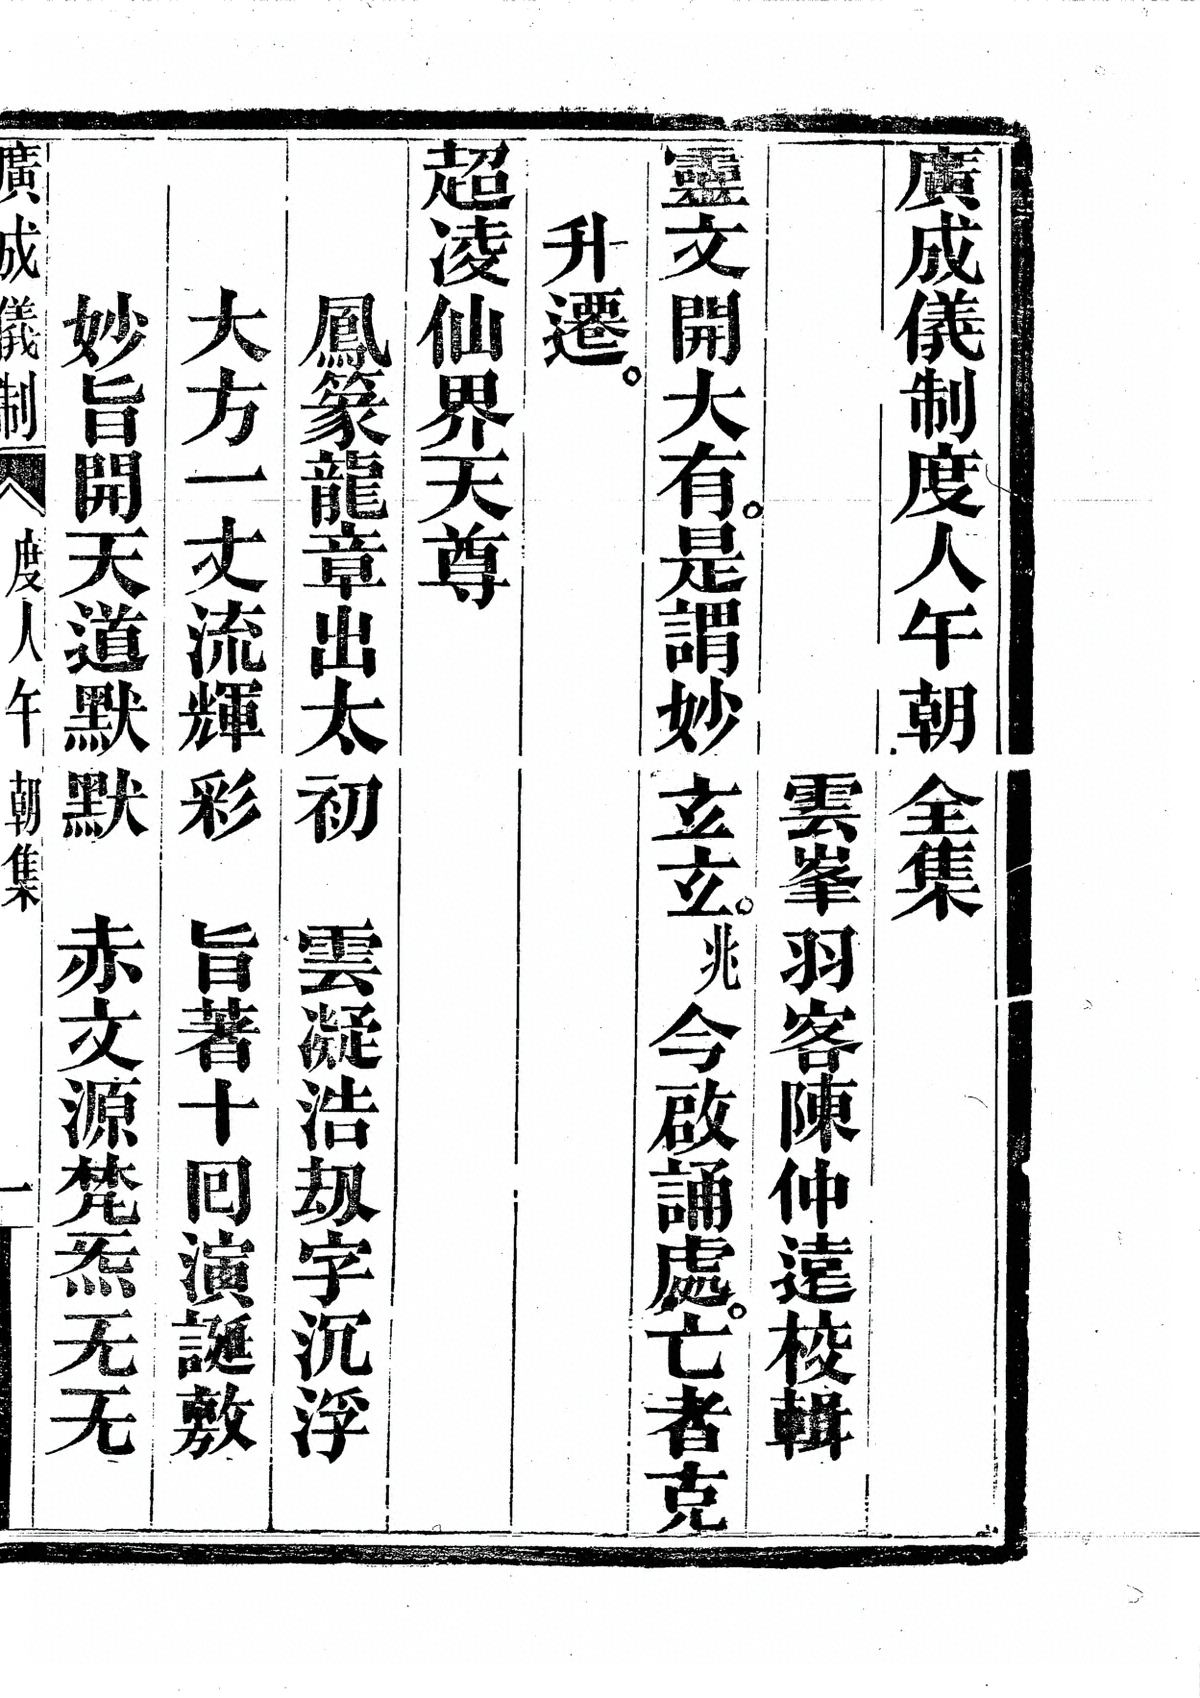 廣成儀制度人午朝全集
雲峯羽客陳仲遠校輯
靈文開大有。是謂妙玄玄。兆今啟誦處。亡者克
升遷。
超凌仙界天尊
鳳篆龍章出太初　雲凝浩劫字沉浮
大方一丈流輝彩　旨著十回演誕敷
妙旨開天道默默　赤文源梵炁无无
廣成儀制　度人午朝集　一